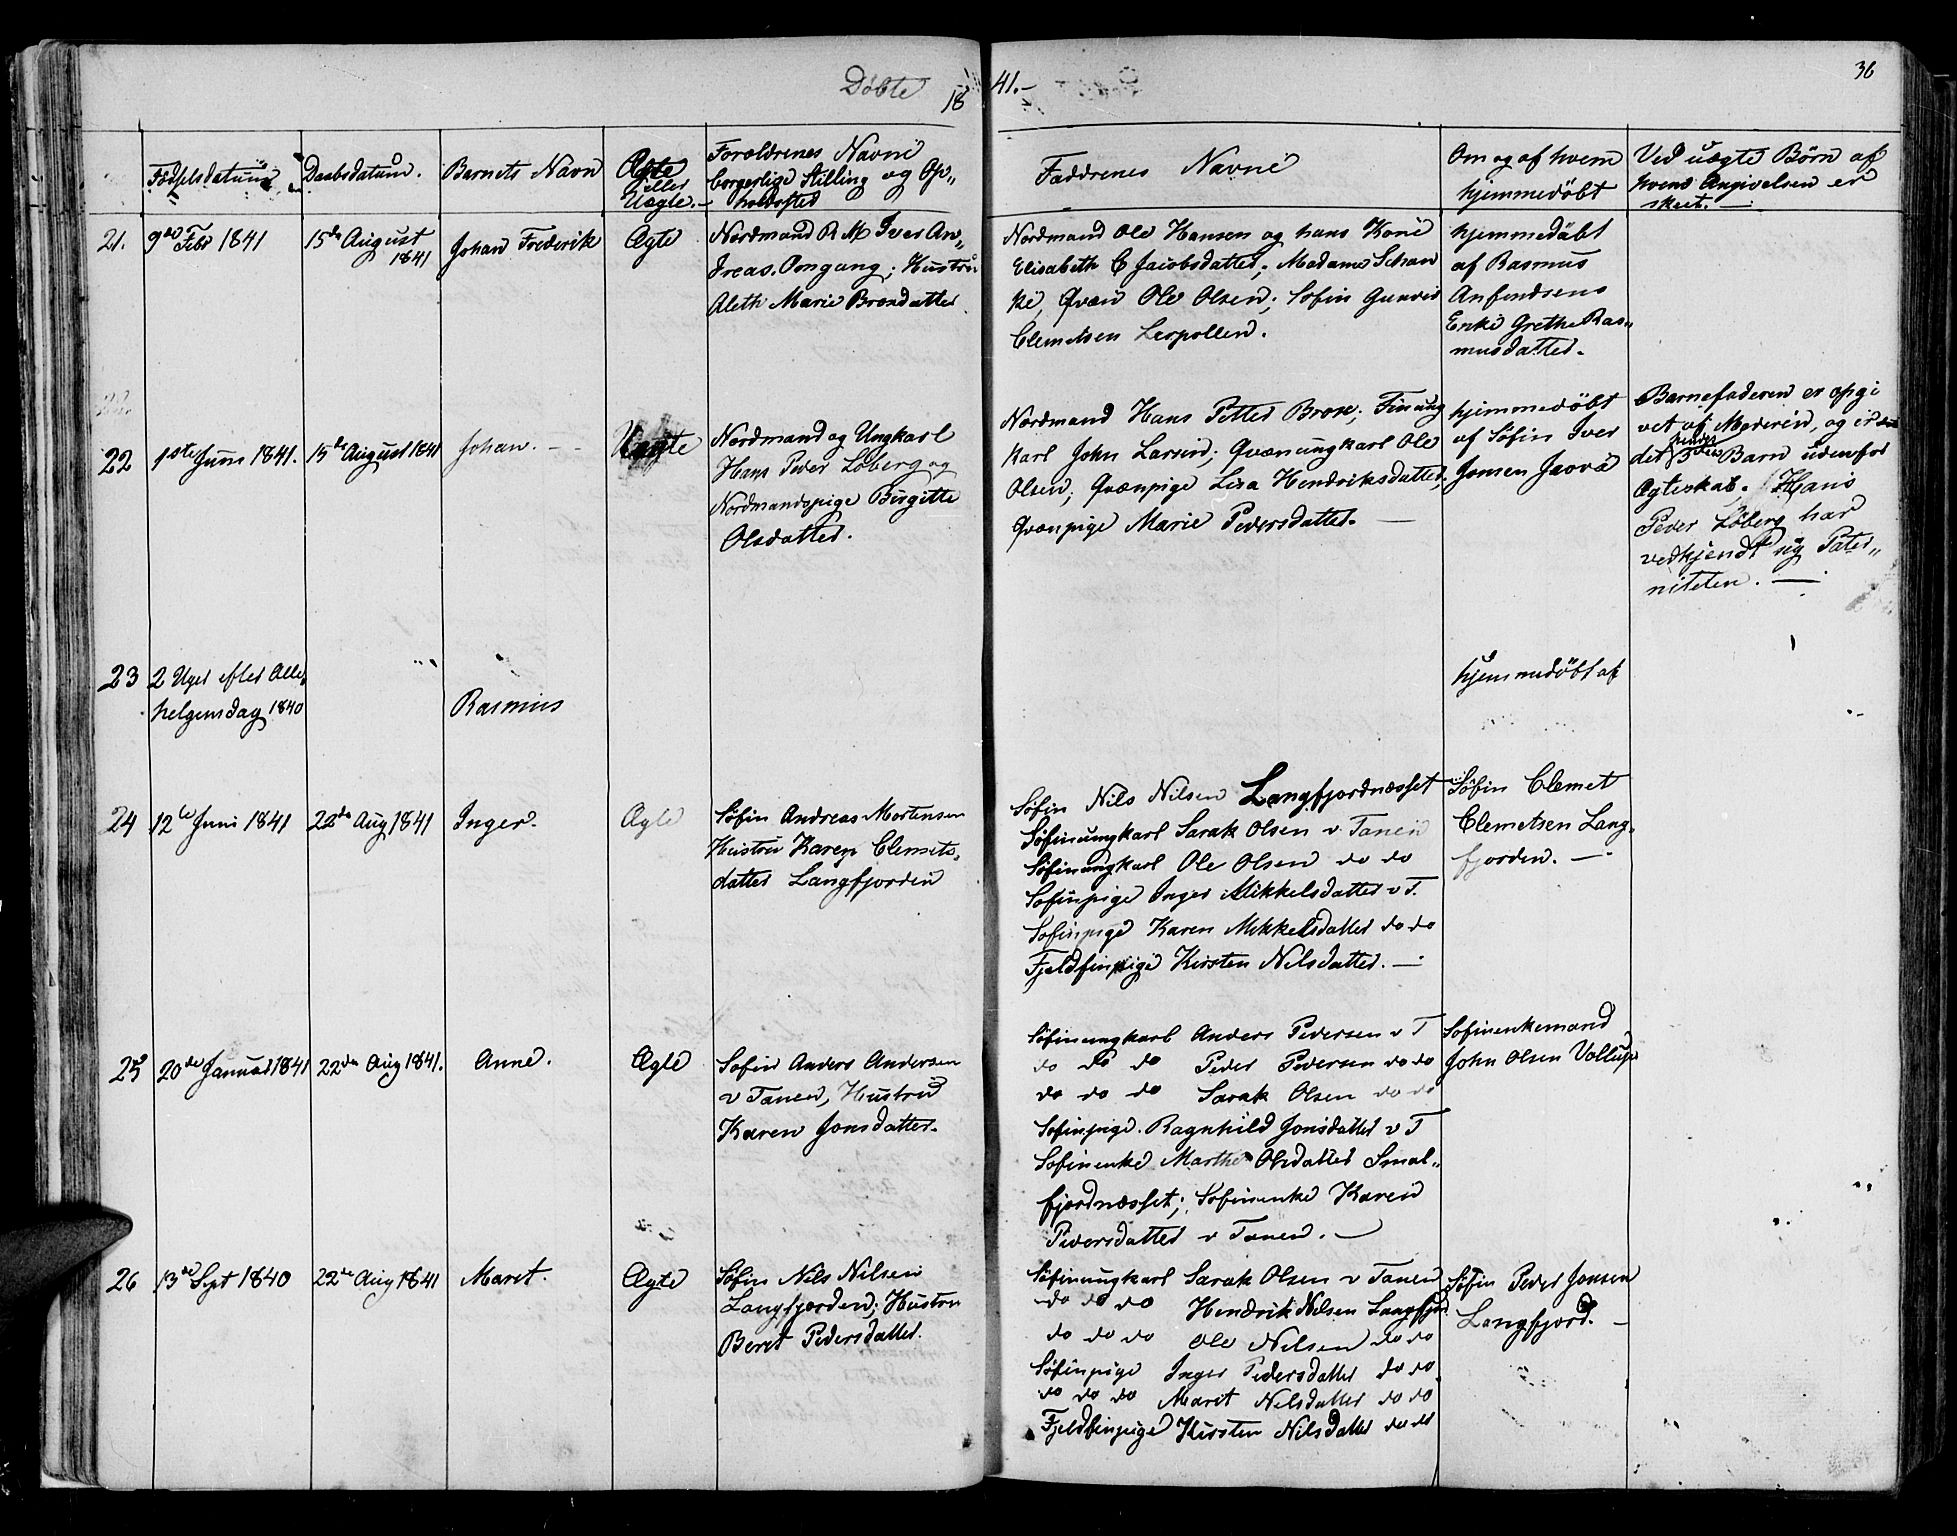 Döbte 18 41.-
36
Födselsdatum
Daabsdatum.
Barnets Navn
Ægte
eller
Uægte.-
Forældrenes Navne
borgerlige Stilling og Op„
holdssted
Faddrenes Navne
Om og af hvem
hjemmedöbt
Ved uægte Börn af
hvem Angivelsen er
skeet. —
21.
9de Febr 1841
15de August
1841
Johan Frederik
Ægte
Nordmand R M Iver An„
dreas Pongang; Hustru
Aleth Marie Brosdatter
Nordmand Ole Hansen og hans Kone
Elisabeth C Jacobsdatter; Madame Schan
ke, Qvæn Ole Olsen; Söfin Gunner
Clemetsen Lerpollen.
hjemmedöbt
af Rasmus
Anfindsens
Enke Grethe Ras„
musdatter.
22
1ste Juni 1841.
15de August 1841
Johan. —
Uægte
Nordmand og Ungkarl
Hans Peder Löberg og
Nordmandspige Birgitte
Olsdatter.
Nordmand Hans Petter Brox; Finung
karl John Larsen; Qvænungkarl Ole
Olsen; Qvænpige Lisa Hendriksdatter;
Qvænpige Marie Pedersdatter. —
hjemmedöbt
af Söfin Iver
Jonsen
Barnefaderen er opgi
vet af Moderen, og er
det hendes 3die Barn udenfor
Ægteskab. Hans
Peder Löberg har
vedkjendt sig Pater„
niteten. —
23
2 Uger efter Alle„
helgensdag 1840
Rasmus
hjemmedöbt af
24
12te Juni 1841
22de Aug 1841
Inger.
Ægte
Söfin Andreas Mortensen
Hustru Karen Clemets„
datter Langfjorden
Söfin Nils Nilsen Langfjordnæsset
Söfinungkarl Sarak Olsen v Tanen
Söfinungkarl Ole Olsen do do
Söfinpige Inger Mikkelsdatter v T.
Söfinpige Karen Mikkelsdatter do do
Fjeldfinpige Kirsten Nilsdatter. —
Söfin Clemet
Clemetsen Lang„
fjorden. —
25
20de Januar 1841
22de Aug 1841.
Anne.
Ægte
Söfin Anders Andersen
v Tanen, Hustru
Karen Jonsdatter.
Söfinungkarl Anders Pedersen v T
do do do Peder Pedersen do do
do do do Sarak Olsen do do
Söfinpige Ragnhild Jonsdatter v T
Söfinenke Marthe Olsdatter Smal„
fjordnæsset; Söfinenke Karen
Pedersdatter v Tanen. —
Söfinenkemand
John Olsen
26
13de Sept 1840
22de Aug 1841
Maret.
Ægte
Söfin Nils Nilsen
Langfjorden; Hustru
Beret Pedersdatter.
Söfinungkarl Sarak Olsen v Tanen
do do do Hendrik Nilsen Langfjord
do do do Ole Nilsen do do
Söfinpige Inger Pedersdatter do do
do do do Marit Nilsdatter do do
Fjeldfinpige Kirsten Nilsdatter do do
Söfin Peder Jonsen
Langfjord. —